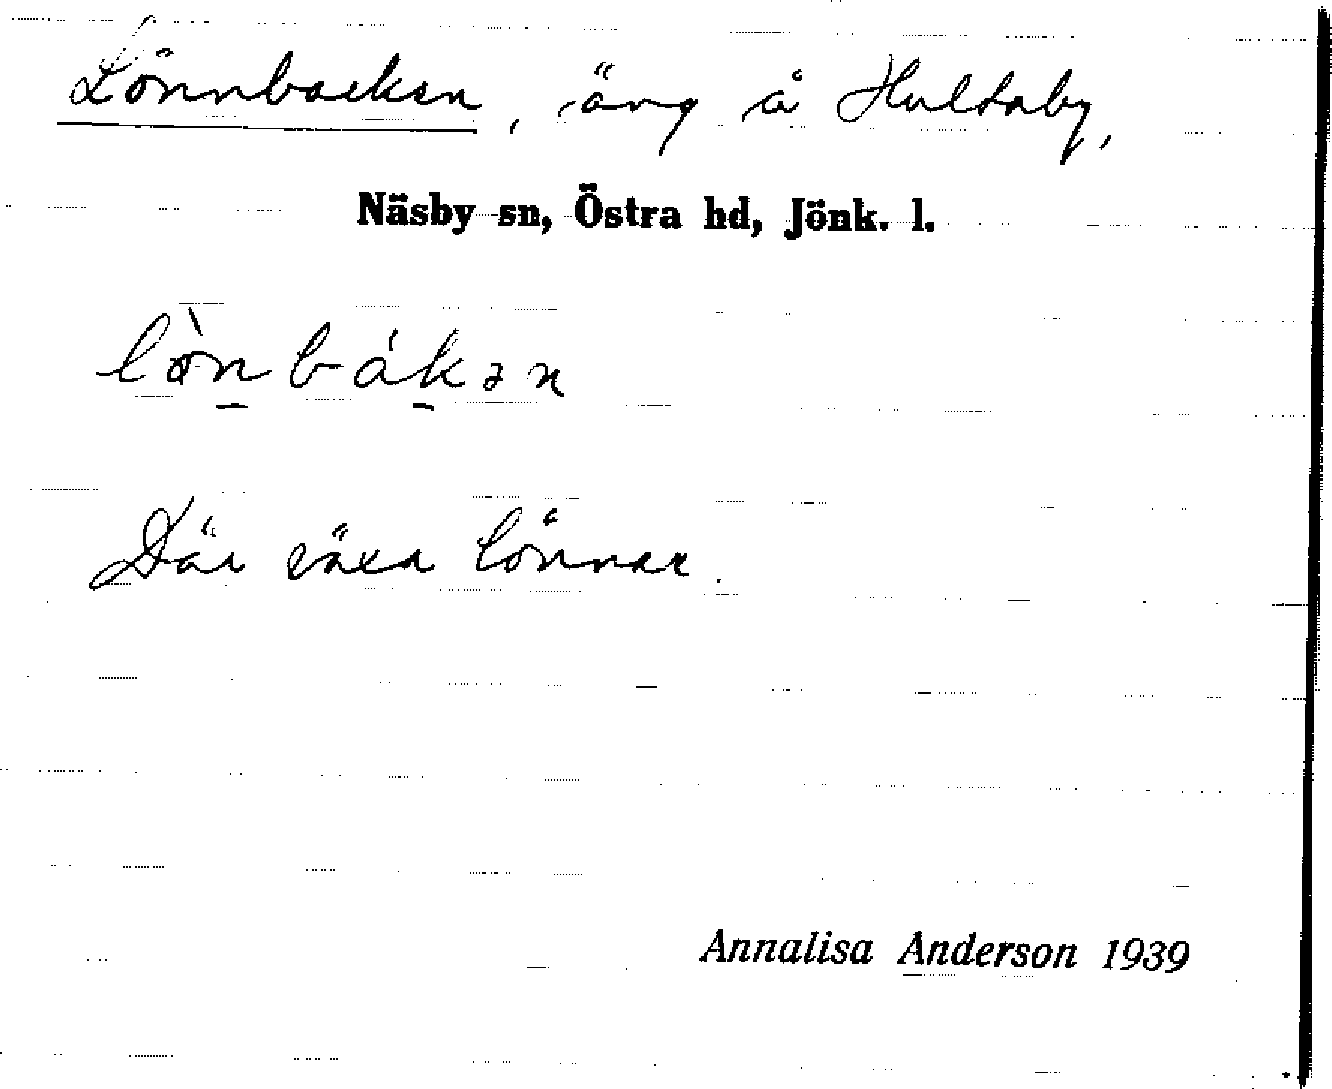 Lönnbacken, äng å Hultaby,
Näsby sn, Östra hd, Jönk. l.
lὸn̲bák̲ən
Där växa lönnar.
Annalisa Anderson 1939